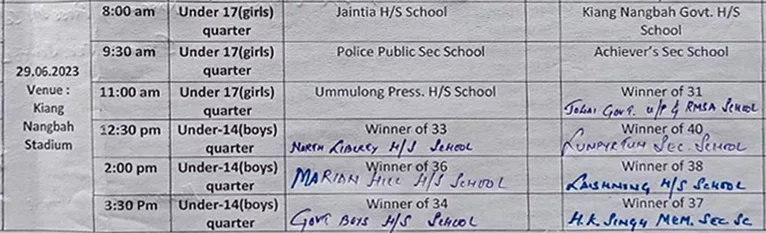 8:00 am Under 17(girls) quarter Jaintia H/S School Kiang Nangbah Govt. H/S School
9:30 am Under 17(girls) quarter Police Public Sec School Achiever's Sec School
29.06.2023 Venue : Kiang Nangbah Stadium
11:00 am Under 17(girls) quarter Ummulong Press. H/S School Winner of 31
JOWAI GOVT. U/P & RMSA SCHOOL
12:30 pm Under-14(boys) quarter Winner of 33 Winner of 40
NORTH LIBERTY H/S SCHOOL SEC. SCHOOL
2:00 pm Under-14(boys) quarter Winner of 36 Winner of 38
MARIAN HILL H/S SCHOOL H/S SCHOOL
3:30 Pm Under-14(boys) quarter Winner of 34 Winner of 37
GOVT BOYS H/S SCHOOL H.K. SINGH MEM. SEC SC